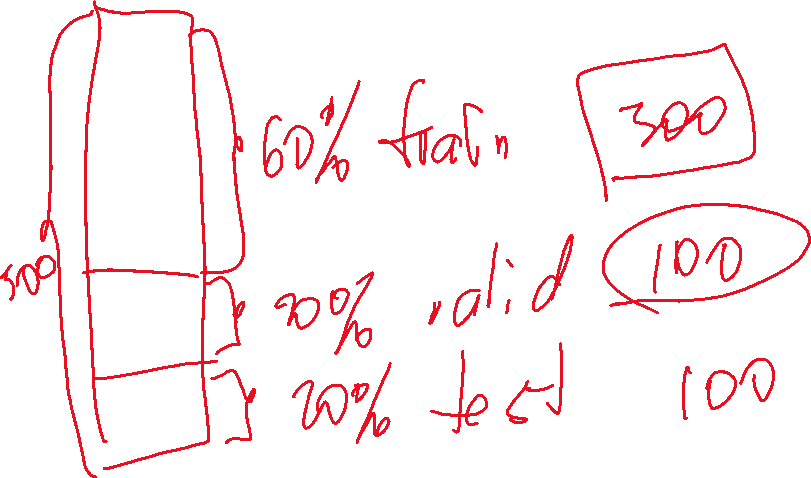 60% train 300
20% valid 100
500
20% test 100